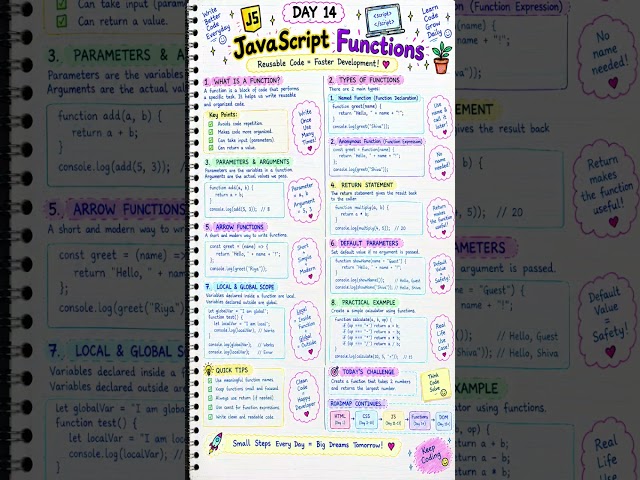 Write
Better
Code
Everyday
JS
DAY 14
<script>
</script>
Learn
Code
Grow
Daily
JavaScript Functions
Reusable Code = Faster Development!
1. WHAT IS A FUNCTION?
A function is a block of code that performs
a specific task. It helps us write reusable
and organized code.
Key Points:
Avoids code repetition.
Makes code more organized.
Can take input (parameters).
Can return a value.
Write
Once
Use
Many
Times!
2. TYPES OF FUNCTIONS
There are 2 main types:
1. Named Function (Function Declaration)
function greet(name) {
return "Hello, " + name + "!";
}
console.log(greet("Shiva"));
Use
name &
call it
later!
2. Anonymous Function (Function Expression)
const greet = function(name) {
return "Hello, " + name + "!";
};
console.log(greet("Shiva"));
No
name
needed!
3. PARAMETERS & ARGUMENTS
Parameters are the variables in a function
Arguments are the actual values we pass.
function add(a, b) {
return a + b;
}
console.log(add(5, 3)); // 8
Parameter
= a, b
Argument
= 5, 3
4. RETURN STATEMENT
The return statement gives the result back
to the caller
function multiply(a, b) {
return a * b;
}
console.log(multiply(4, 5)); // 20
Return
makes the
function
useful!
5. ARROW FUNCTIONS
A short and modern way to write functions.
const greet = (name) => {
return "Hello, " + name + "!";
};
console.log(greet("Riya"));
Short
+
Simple
=
Modern
6. DEFAULT PARAMETERS
Set default value if no argument is passed.
function showName(name = "Guest") {
return "Hello, " + name + "!";
}
console.log(showName()); // Hello, Guest
console.log(showName("Shiva")); // Hello, Shiva
Default
Value
=
Safety!
7. LOCAL & GLOBAL SCOPE
Variables declared inside a function are local.
Variables declared outside are global.
let globalVar = "I am global";
function test() {
let localVar = "I am local";
console.log(localVar); // Works
}
console.log(globalVar); // Works
console.log(localVar); // Error
Local
= Inside
Function
Global
= Outside
8. PRACTICAL EXAMPLE
Create a simple calculator using functions.
function calculate(a, b, op) {
if (op === "+") return a + b;
if (op === "-") return a - b;
if (op === "*") return a * b;
if (op === "/") return a / b;
}
Real
Life
Use
Case!
QUICK TIPS
Use meaningful function names.
Keep functions small and focused.
Always use return (if needed)
Use const for function expressions.
Write clean and readable code.
Clean
Code
=
Happy
Developer
TODAY'S CHALLENGE
Create a function that takes 2 numbers
and returns the largest number.
Think
Code
Solve
ROADMAP CONTINUES...
HTML
CSS
JS
Functions
DOM
Small Steps Every Day = Big Dreams Tomorrow!
Keep
Coding